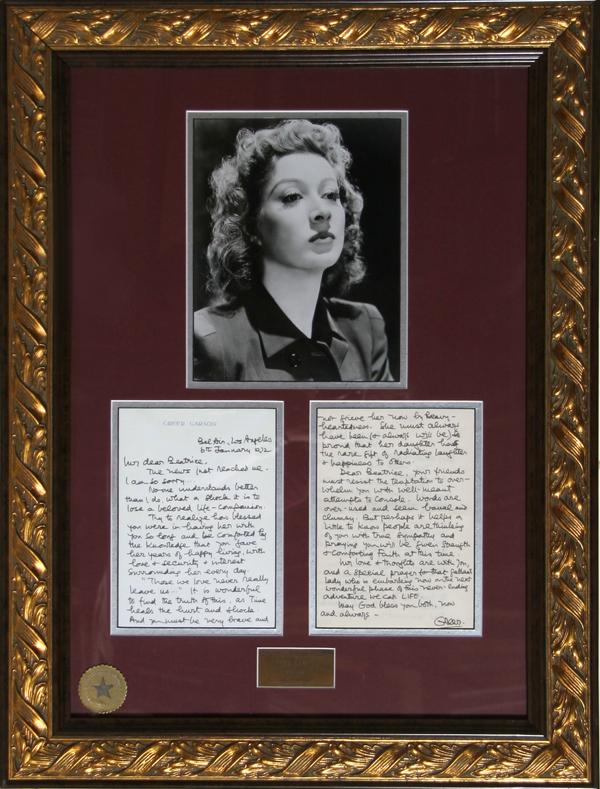 GREER GARSON
Bel Air, Los Angeles
6th January 1972
My dear Beatrice,
The news just reached me -
I am so sorry.
No one understands better
than I do, what a shock it is to
lose a beloved life - companion.
Try to realize how blessed
you were in having her with
you so long and be comforted by
the knowledge that you gave
her years of happy living, with
love + security + interest
surrounding her every day.
"Those we love never really
leave us.." It is wonderful
to find the truth of this, as Time
heals the hurt and shock.
And you must be very brave and
not grieve her now by heavy-
heartedness. She must always
have been (& always will be) so
proud that her daughter has
the rare gift of radiating laughter
+ happiness to others.
Dear Beatrice, your friends
must resist the temptation to over-
whelm you with well-meant
attempts to console. Words are
over-used and seem banal and
clumsy. But perhaps it helps a
little to know people are thinking
of you with true sympathy and
praying you will be given strength
+ comforting Faith at this time.
My love + thoughts are with you,
and a special prayer for that gallant
lady who is embarking now on the next
wonderful phase of this never-ending
adventure we call LIFE.
May God bless you both, now
and always -
Greer.